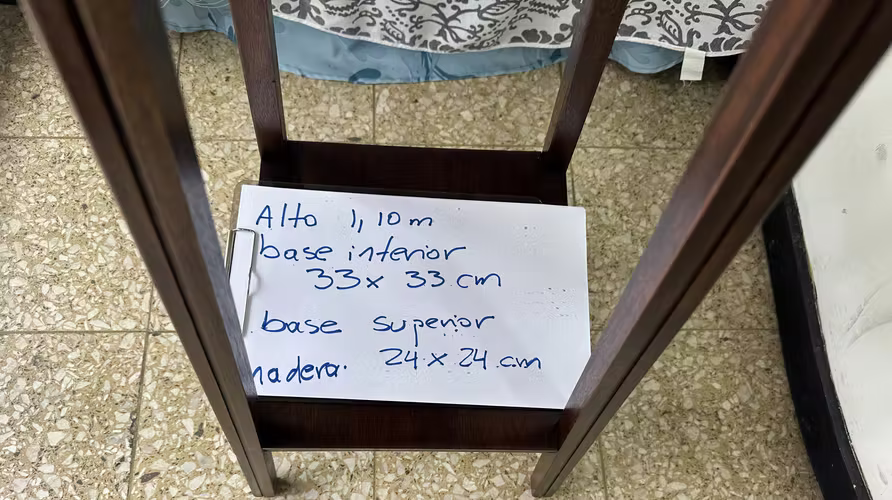 Alto 1,10 m
base interior
33 x 33 cm
base superior
24 x 24 cm
nadera.